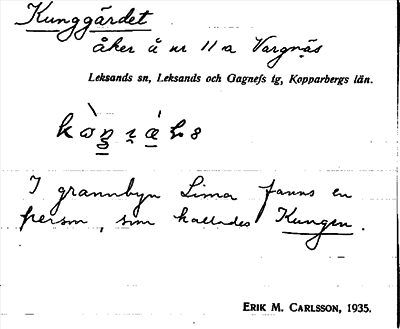 Kunggärdet
åker å nr 11 a Vargnäs
Leksands sn, Leksands och Gagnefs tg, Kopparbergs län.
I grannbyn Lima fanns en
person, som kallades Kungen.
ERIK M. CARLSSON, 1935.